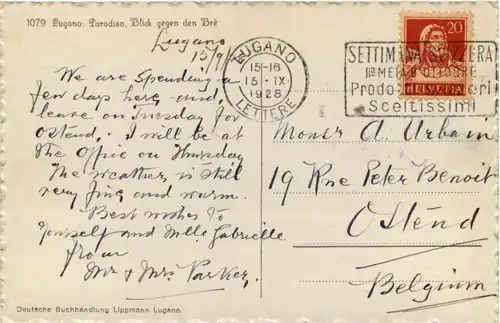 1079 Lugano: Paradiso, Blick gegen den Brè
Lugano
15/9
We are spending a
few days here and
leave on Tuesday for
Ostend. I will be at
the Office on Thursday
The weather is still
very fine and warm.
Best wishes to
yourself and Mlle Gabrielle
from
Mr & Mrs Parker.
Deutsche Buchhandlung Lippmann Lugano.
LUGANO
15-16
15 · IX
1928
LETTERE
SETTIMANA SVIZZERA
IIa METÀ D'OTTOBRE
Prodotti Svizzeri
Sceltissimi
20
HELVETIA
Monsr A. Urbain
19 Rue Peter Benoit
Ostend
Belgium